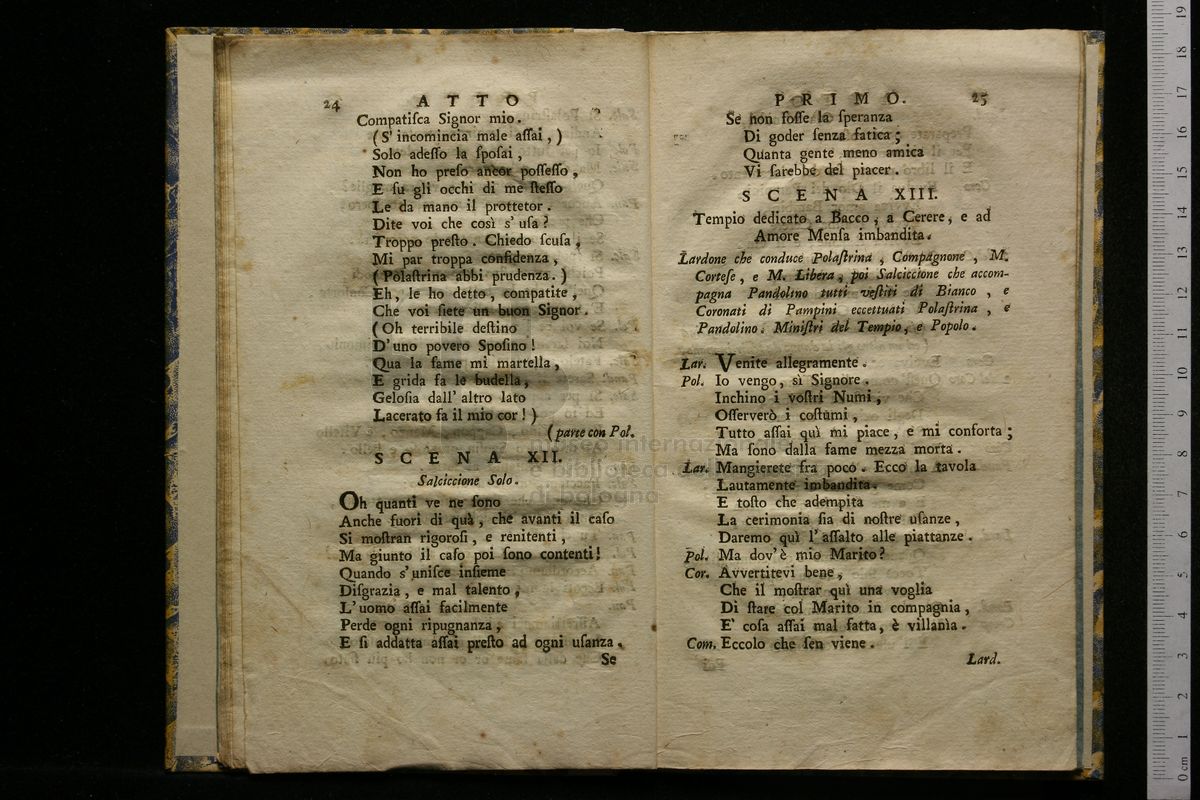 24 ATTO
Compatiſca Signor mio.
(S' incomincia male aſſai,)
Solo adeſſo la ſpoſai,
Non ho preſo ancor poſſeſſo,
E ſu gli occhi di me ſteſſo
Le da mano il prottetor.
Dite voi che così s' uſa?
Troppo preſto. Chiedo ſcuſa,
Mi par troppa confidenza,
(Polaſtrina abbi prudenza.)
Eh, le ho detto, compatite,
Che voi ſiete un buon Signor.
(Oh terribile deſtino
D'uno povero Spoſino!
Qua la fame mi martella,
E grida fa le budella,
Geloſia dall' altro lato
Lacerato fa il mio cor!)
(parte con Pol.
SCENA XII.
Salciccione Solo.
Oh quanti ve ne ſono
Anche fuori di quà, che avanti il caſo
Si moſtran rigoroſi, e renitenti,
Ma giunto il caſo poi ſono contenti!
Quando s'uniſce inſieme
Diſgrazia, e mal talento,
L'uomo aſſai facilmente
Perde ogni ripugnanza,
E ſi addatta aſſai preſto ad ogni uſanza.
Se
PRIMO. 25
Se non foſſe la ſperanza
Di goder ſenza fatica;
Quanta gente meno amica
Vi ſarebbe del piacer.
SCENA XIII.
Tempio dedicato a Bacco, a Cerere, e ad
Amore Menſa imbandita.
Lardone che conduce Polaſtrina, Compagnone, M.
Corteſe, e M. Libera, poi Salciccione che accom-
pagna Pandolino tutti veſtiti di Bianco, e
Coronati di Pampini eccettuati Polaſtrina, e
Pandolino. Miniſtri del Tempio, e Popolo.
Lar. Venite allegramente.
Pol. Io vengo, sì Signore.
Inchino i voſtri Numi,
Oſſerverò i coſtumi,
Tutto aſſai quì mi piace, e mi conforta;
Ma ſono dalla fame mezza morta.
Lar. Mangierete fra poco. Ecco la tavola
Lautamente imbandita.
E toſto che adempita
La cerimonia ſia di noſtre uſanze,
Daremo quì l'aſſalto alle piattanze.
Pol. Ma dov'è mio Marito?
Cor. Avvertitevi bene,
Che il moſtrar quì una voglia
Di ſtare col Marito in compagnia,
E' coſa aſſai mal fatta, è villanìa.
Com. Eccolo che ſen viene.
Lard.
museo internazionale
e biblioteca
di bologna
0 cm 1 2 3 4 5 6 7 8 9 10 11 12 13 14 15 16 17 18 19